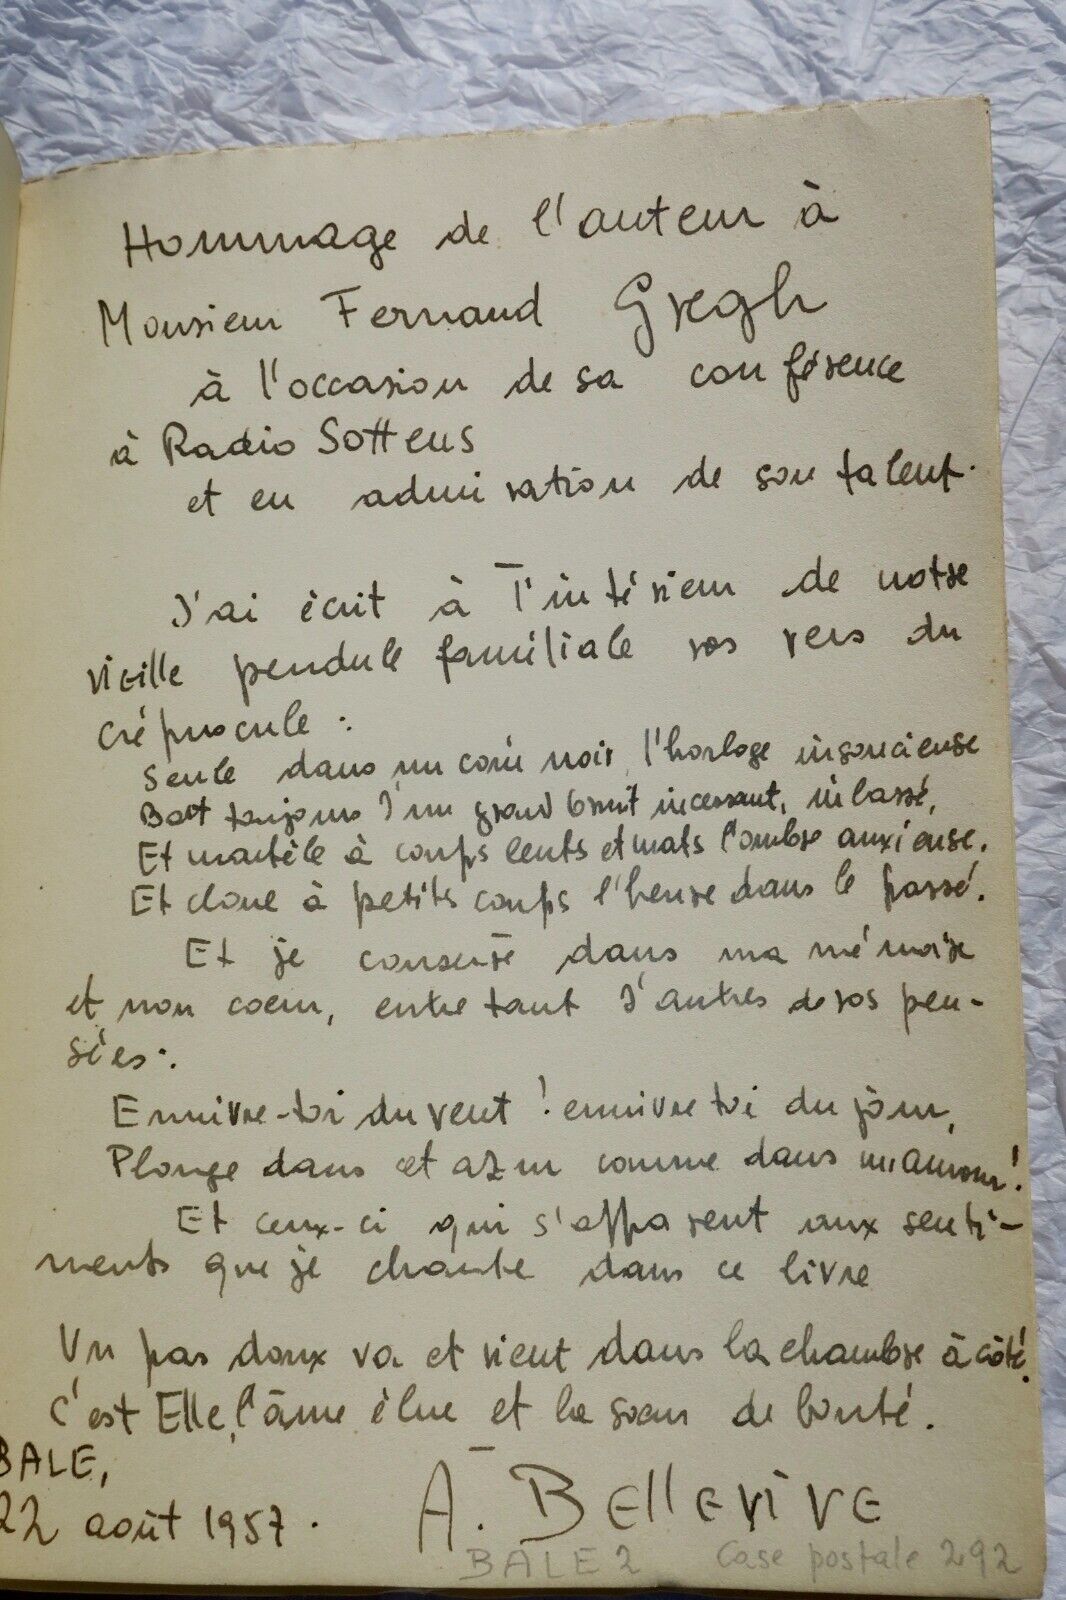 Hommage de l'auteur à
Monsieur Fernand Gregh
à l'occasion de sa conférence
à Radio Sottens
et en admiration de son talent.
J'ai écrit à l'intérieur de notre
vieille pendule familiale vos vers du
crépuscule :
Seule dans un coin noir, l'horloge insoucieuse
Bat toujours d'un grand bruit incessant, inlassé,
Et martèle à coups lents et mats l'ombre anxieuse.
Et cloue à petits coups l'heure dans le passé.
Et je conserve dans ma mémoire
et mon coeur, entre tant d'autres de vos pen-
sées :
Ennivre-toi du vent ! ennivre toi du jour,
Plonge dans cet azur comme dans un amour !
Et ceux-ci qui s'apparent aux senti-
ments que je chante dans ce livre
Un pas doux va et vient dans la chambre à côté.
C'est Elle, l'âme élue et la soeur de bonté.
BALE,
22 août 1957.
A. Bellevive
BALE 2 Case postale 292